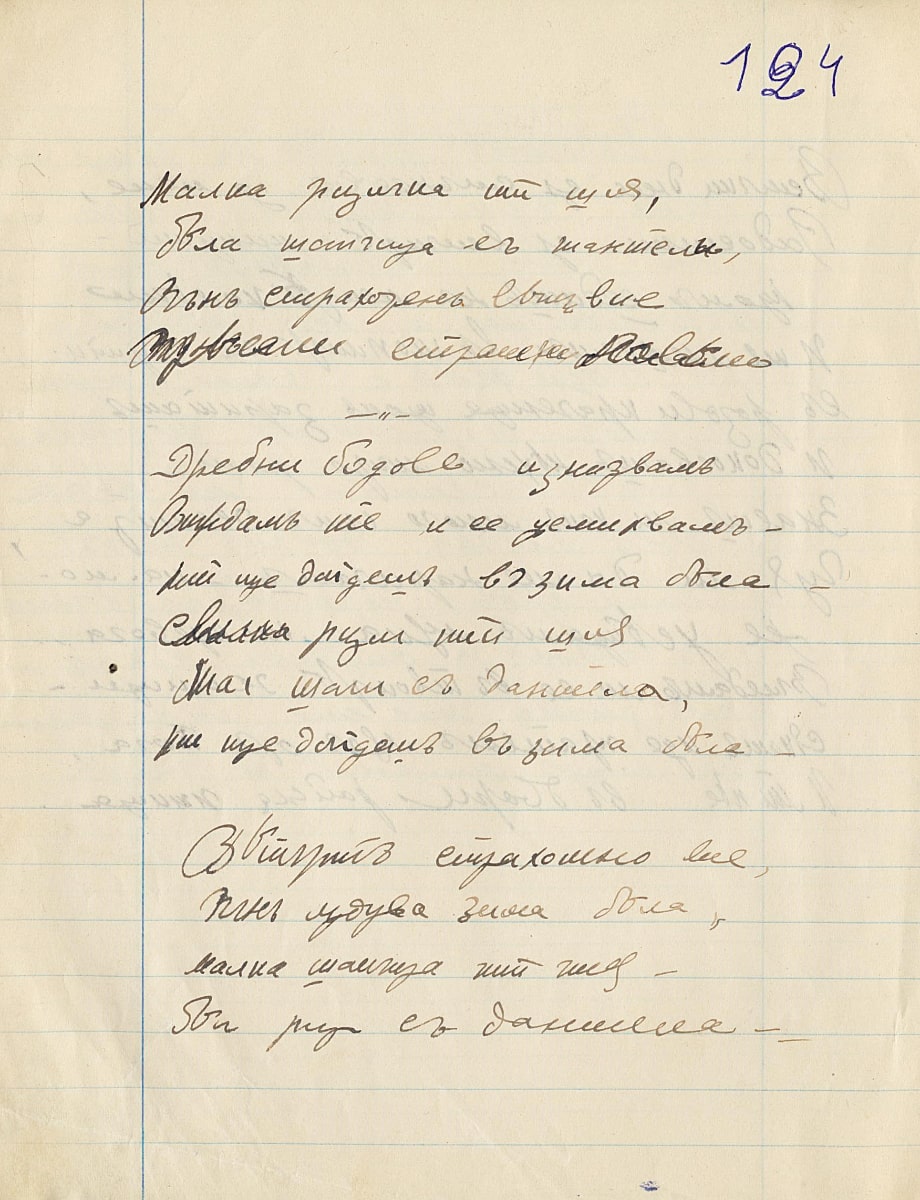 124
Малка ризичка ти шия,
бѣла шапчица съ тантели,
Вънъ страхотенъ вие
страшни
—„—
Дребни бодове изнизвамъ
Виждамъ те и се усмихвамъ –
ти ще дойдешъ въ зима бѣла –
ризи ти шия
шапки съ дантела,
ти ще дойдешъ въ зима бѣла –
Вѣтърътъ страхотно вие,
Вънъ лудува зима бѣла,
малка шапчица ти шия –
бѣл риз съ дантела –